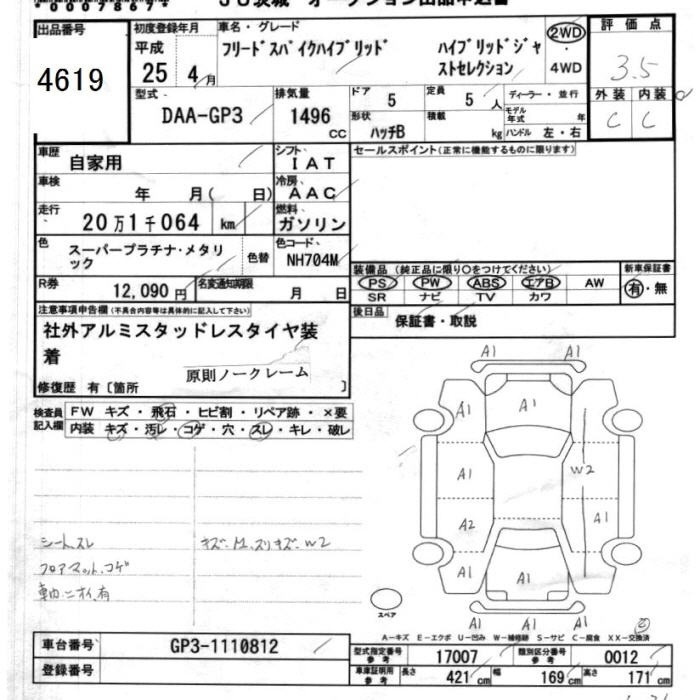 出品番号
4619
初度登録年月
平成
25 4月
車名・グレード
フリードスパイクハイブリッド ハイブリッドジャ
ストセレクション
2WD
・
4WD
評価点
3.5
外装 内装
C C
型式
DAA-GP3
排気量
1496
CC
ドア 5
定員 5 人
形状
ハッチB
積載 kg
ディーラー・並行
モデル
年式 年
ハンドル 左・右
車歴 自家用
シフト
IAT
車検 年 月( 日)
冷房
AAC
走行 20万1千064 km
燃料
ガソリン
色 スーパープラチナ・メタリ
ック
色替
色コード
NH704M
R券 12,090円
名変通知期限 月 日
セールスポイント(正常に機能するものに限ります)
装備品 (純正品に限り○をつけてください)
PS PW ABS エアB AW
SR ナビ TV カワ
新車保証書
有・無
後日品 保証書・取説
注意事項申告欄(不具合内容等は具体的に記入して下さい)
社外アルミスタッドレスタイヤ装
着
原則ノークレーム
修復歴 有〔箇所 〕
検査員
記入欄
FW キズ・飛石・ヒビ割・リペア跡・×要
内装 キズ・汚レ・コゲ・穴・スレ・キレ・破レ
シートスレ
フロアマット、コゲ
車内ニオイ有
キズ・エクボ、スリキズ・W2
A1 A1
A1 A1 A1
A1 W2
A2 A1
A1 A1 A1
A1 A1
スペア
A-キズ E-エクボ U-凹み W-補修跡 S-サビ C-腐食 XX-交換済
車台番号 GP3-1110812
登録番号
型式指定番号
参考
17007
類別区分番号
参考
0012
車庫証明用
参考
長さ 421cm 幅 169cm 高さ 171cm